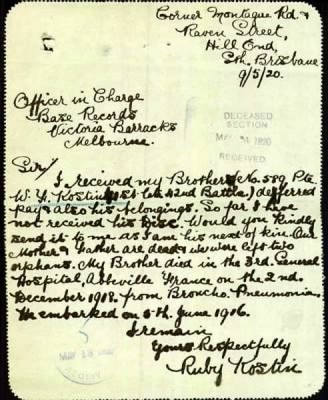 Corner Montague Rd. &
Raven Street,
Hill End,
Sth. Brisbane
9/5/20.
Officer in Charge
Base Records
Victoria Barracks
Melbourne.
DECEASED
SECTION
1920
RECEIVED
Sir/
I received my Brothers No. 589 Pte
W. Y. Kostin late 42nd Battn, deferred
pay & also his belongings. So far I have
not received his Disc. Would you kindly
send it to me as I am his next of kin. Our
Mother & Father are dead & we were left two
orphans. My Brother died in the 3rd. General
Hospital, Abbeville France on the 2nd.
December 1918. from Broncho. Pneumonia.
He embarked on 5th. June 1916.
I remain
Yours Respectfully
Ruby Kostin
MAY 13 1920